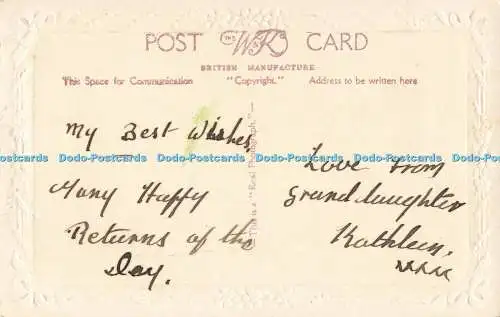 POST THE W&K CARD
BRITISH MANUFACTURE
This Space for Communication "Copyright." Address to be written here
This is a "Real Photograph."
My Best Wishes
Many Haffy
Returns of the
Day.
Love from
Granddaughter
Kathleen.
xxxx
Dodo-Postcards Dodo-Postcards Dodo-Postcards Dodo-Postcards Dodo-Postcards Dodo-Postcards